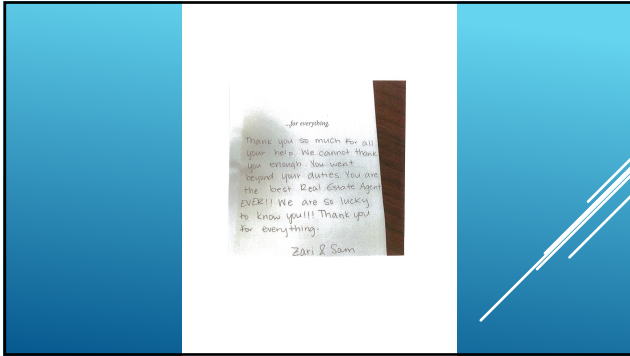 ...for everything.
Thank you so much for all
your help. We cannot thank
you enough. You went
beyond your duties. You are
the best Real Estate Agent
EVER!! We are so lucky
to know you!!! Thank you
for everything.
Zari & Sam